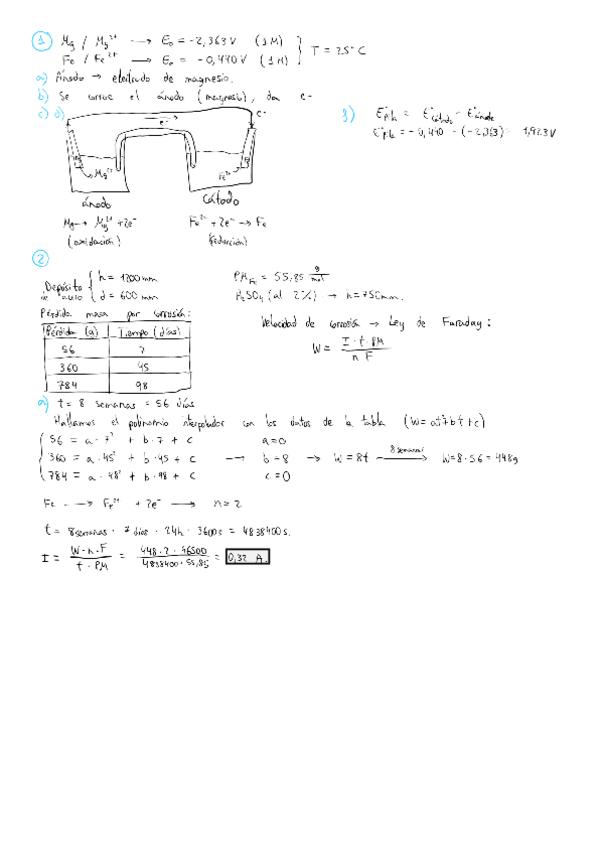 1 Mg / Mg²⁺ → E₀ = -2,363 V (1M)
Fe / Fe²⁺ → E₀ = -0,440 V (1M) } T = 25°C
a) Ánodo → electrodo de magnesio.
b) Se corroe el ánodo (magnesio), da e-
c) d)
e-
e-
Mg²⁺
Fe²⁺
ánodo
Cátodo
Mg → Mg²⁺ + 2e⁻
Fe²⁺ + 2e⁻ → Fe
(oxidación)
(reducción)
E°Pila = E°Cátodo - E°ánodo
E°Pila = -0,440 - (-2,363) = 1,923 V
2
Depósito de acero { h = 1200 mm
d = 600 mm
PM Fe = 55,85 g/mol
H₂SO₄ (al 2%) → h = 750mm.
Pérdida masa por corrosión:
Pérdida (g) Tiempo (días)
56 7
360 45
784 98
Velocidad de corrosión → Ley de Faraday:
W = I·t·PM / n F
a) t = 8 semanas = 56 días
Hallamos el polinomio interpolador con los datos de la tabla (W = at²+bt+c)
56 = a·7² + b·7 + c a=0
360 = a·45² + b·45 + c → b=8 → W = 8t 8 semanas → W = 8·56 = 448g
784 = a·98² + b·98 + c c=0
Fe → Fe²⁺ + 2e⁻ → n = 2
t = 8 semanas · 7 días · 24h · 3600s = 4838400 s.
I = W·n·F / t·PM = 448·2·96500 / 4838400·55,85 = 0,32 A.